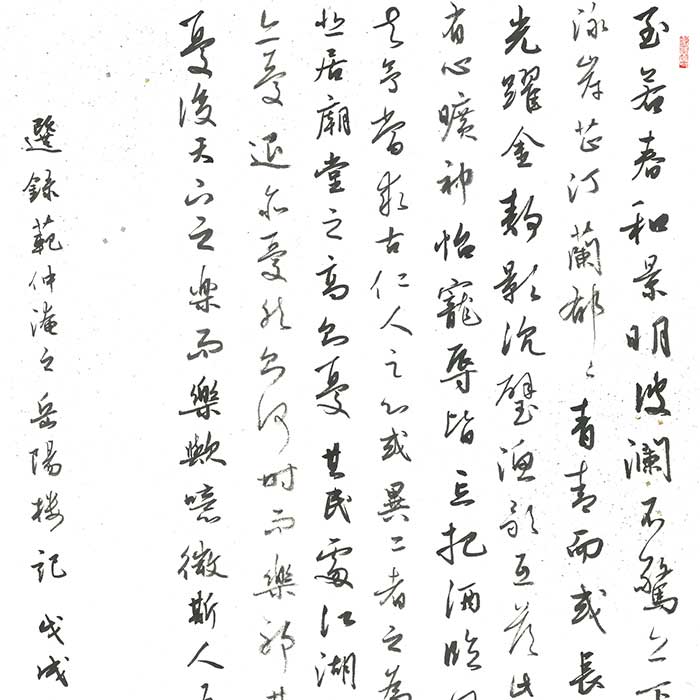 至若春和景明波瀾不驚上下
泳岸芷汀蘭郁々青青而或長
光躍金靜影沉璧漁歌互答此
有心曠神怡寵辱皆忘把酒臨
夫予嘗求古仁人之心或異二者之為
悲居廟堂之高則憂其民處江湖
亦憂退亦憂然則何時而樂耶其
憂後天下之樂而樂歟噫微斯人吾
選錄范仲淹之岳陽樓記 戊戌